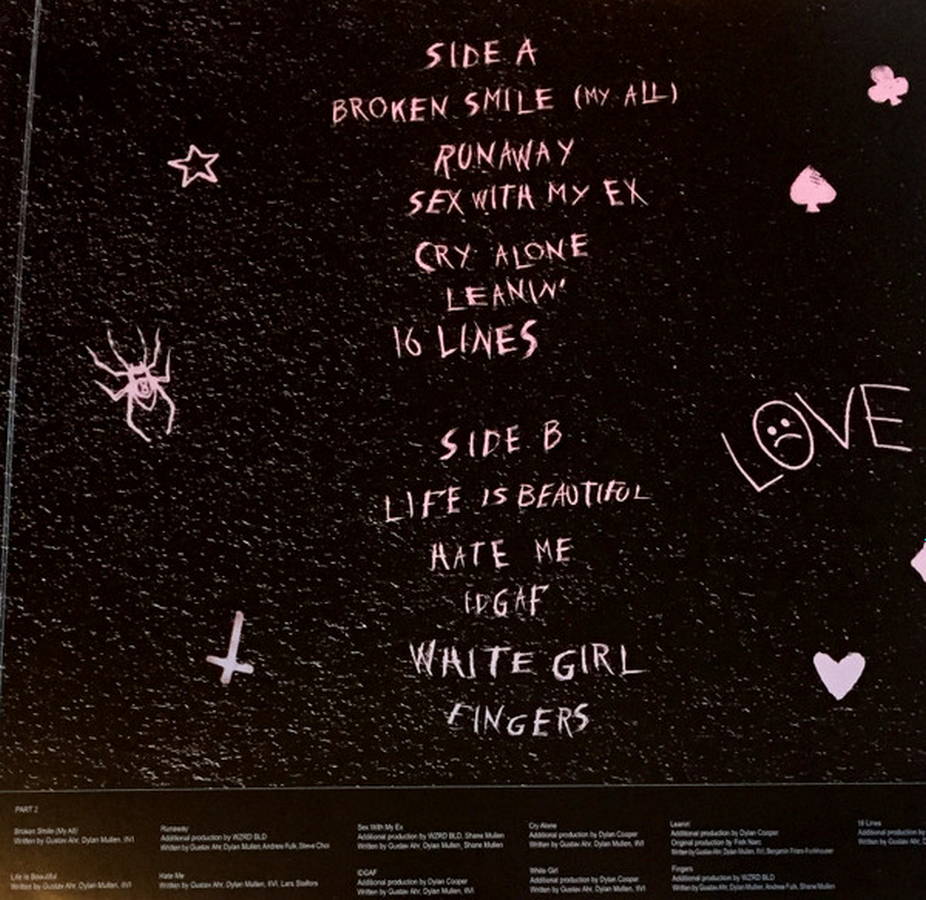 SIDE A
BROKEN SMILE (MY ALL)
RUNAWAY
SEX WITH MY EX
CRY ALONE
LEANIN'
16 LINES
LOVE
SIDE B
LIFE IS BEAUTIFUL
HATE ME
IDGAF
WHITE GIRL
FINGERS
PART 2
Broken Smile (My All)
Written by Gustav Ahr, Dylan Mullen, IIVI
Runaway
Additional production by WZRD BLD
Written by Gustav Ahr, Dylan Mullen, Andrew Fulk, Steve Choi
Sex With My Ex
Additional production by WZRD BLD, Shane Mullen
Written by Gustav Ahr, Dylan Mullen, Shane Mullen
Cry Alone
Additional production by Dylan Cooper
Written by Gustav Ahr, Dylan Mullen, IIVI
Leanin'
Additional production by Dylan Cooper
Original production by Fish Narc
Written by Gustav Ahr, Dylan Mullen, IIVI, Benjamin Friars-Funkhouser
16 Lines
Additional production by
Written by Gustav Ahr, D
Life is Beautiful
Written by Gustav Ahr, Dylan Mullen, IIVI
Hate Me
Written by Gustav Ahr, Dylan Mullen, IIVI, Lars Stalfors
IDGAF
Additional production by Dylan Cooper
Written by Gustav Ahr, Dylan Mullen, IIVI
White Girl
Additional production by Dylan Cooper
Written by Gustav Ahr, Dylan Mullen, IIVI
Fingers
Additional production by WZRD BLD
Written by Gustav Ahr, Dylan Mullen, Andrew Fulk, Shane Mullen